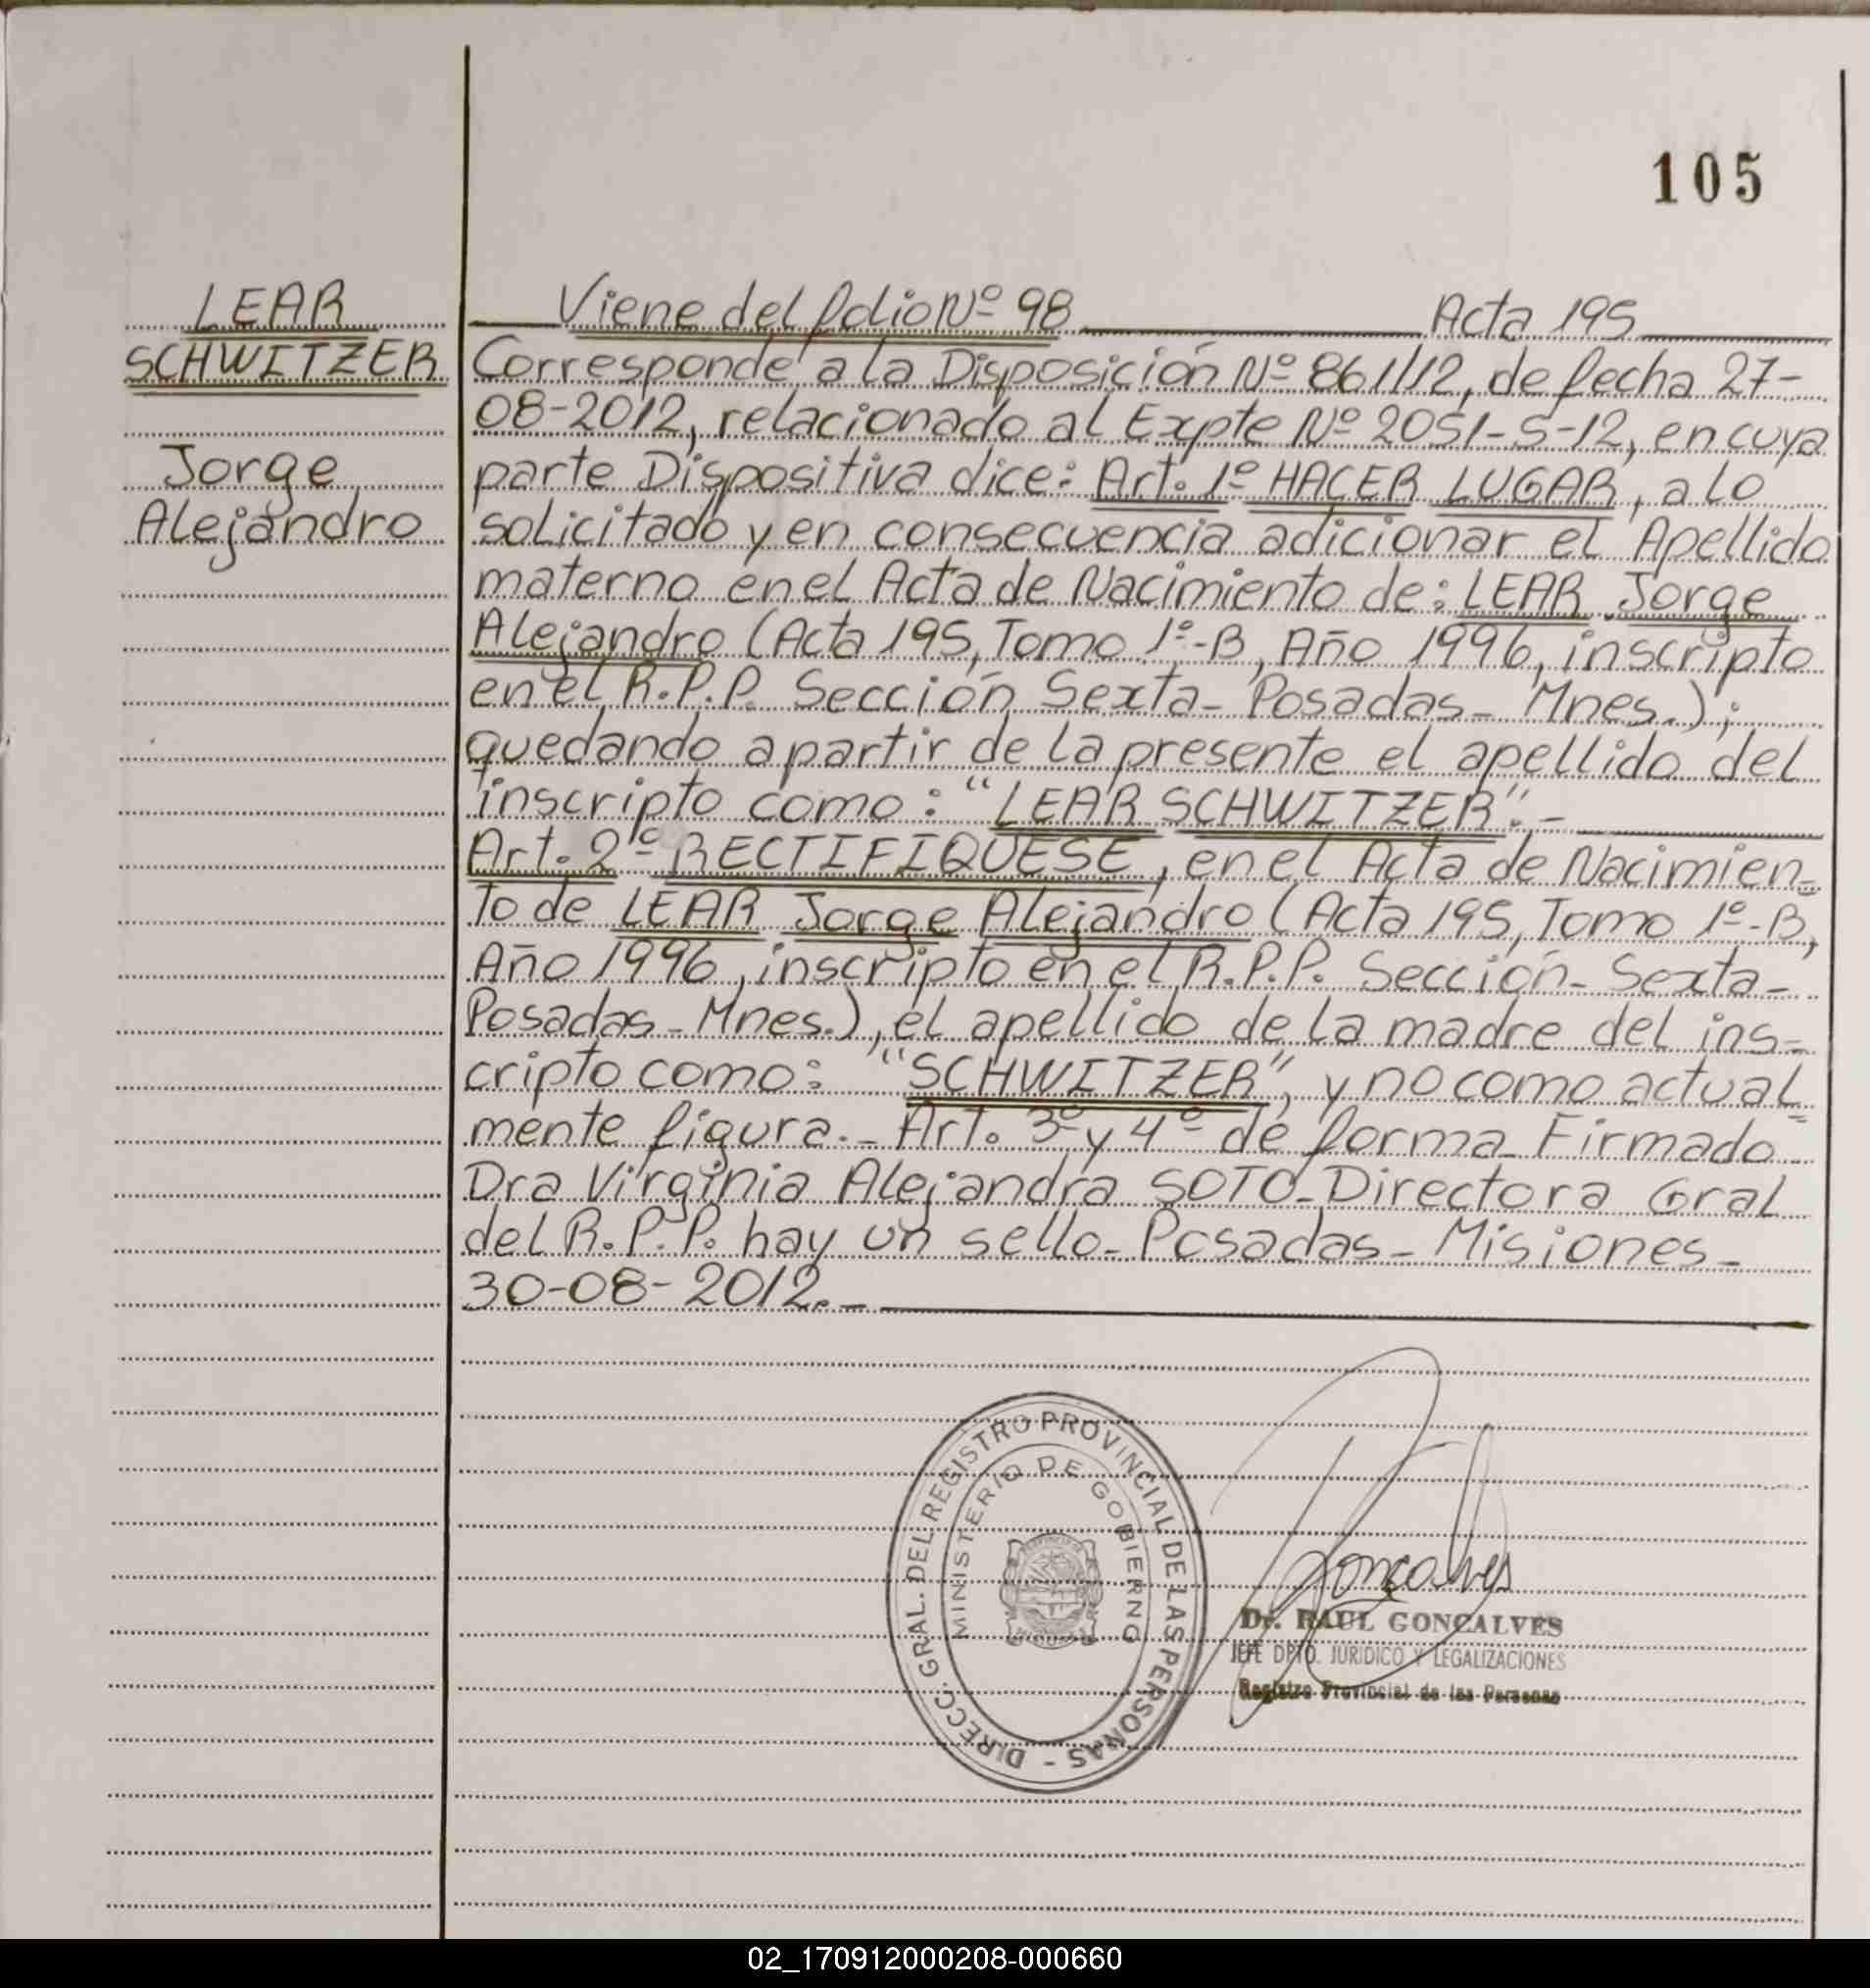 105
LEAR
SCHWITZER
Jorge
Alejandro
Viene del folio Nº 98 Acta 195
Corresponde a la Disposición Nº 861/12, de fecha 27-
08-2012, relacionado al Expte Nº 2051-S-12, en cuya
parte Dispositiva dice: Art. 1º HACER LUGAR, a lo
solicitado y en consecuencia adicionar el Apellido
materno en el Acta de Nacimiento de: LEAR Jorge
Alejandro (Acta 195, Tomo 1º-B, Año 1996, inscripto
en el R.P.P. Sección Sexta- Posadas- Mnes.);
quedando a partir de la presente el apellido del
inscripto como: "LEAR SCHWITZER".-
Art. 2º RECTIFIQUESE, en el Acta de Nacimien-
to de LEAR Jorge Alejandro (Acta 195, Tomo 1º-B,
Año 1996, inscripto en el R.P.P. Sección- Sexta-
Posadas- Mnes.), el apellido de la madre del ins-
cripto como: "SCHWITZER", y no como actual-
mente figura.- Art. 3º y 4º de forma Firmado
Dra Virginia Alejandra SOTO- Directora Gral
del R.P.P. hay un sello- Posadas- Misiones-
30-08-2012.-
DIRECC. GRAL. DEL REGISTRO PROVINCIAL DE LAS PERSONAS -
MINISTERIO DE GOBIERNO
Gonçalves
Dr. RAUL GONCALVES
JEFE DPTO. JURIDICO Y LEGALIZACIONES
Registro Provincial de las Personas
02_170912000208-000660